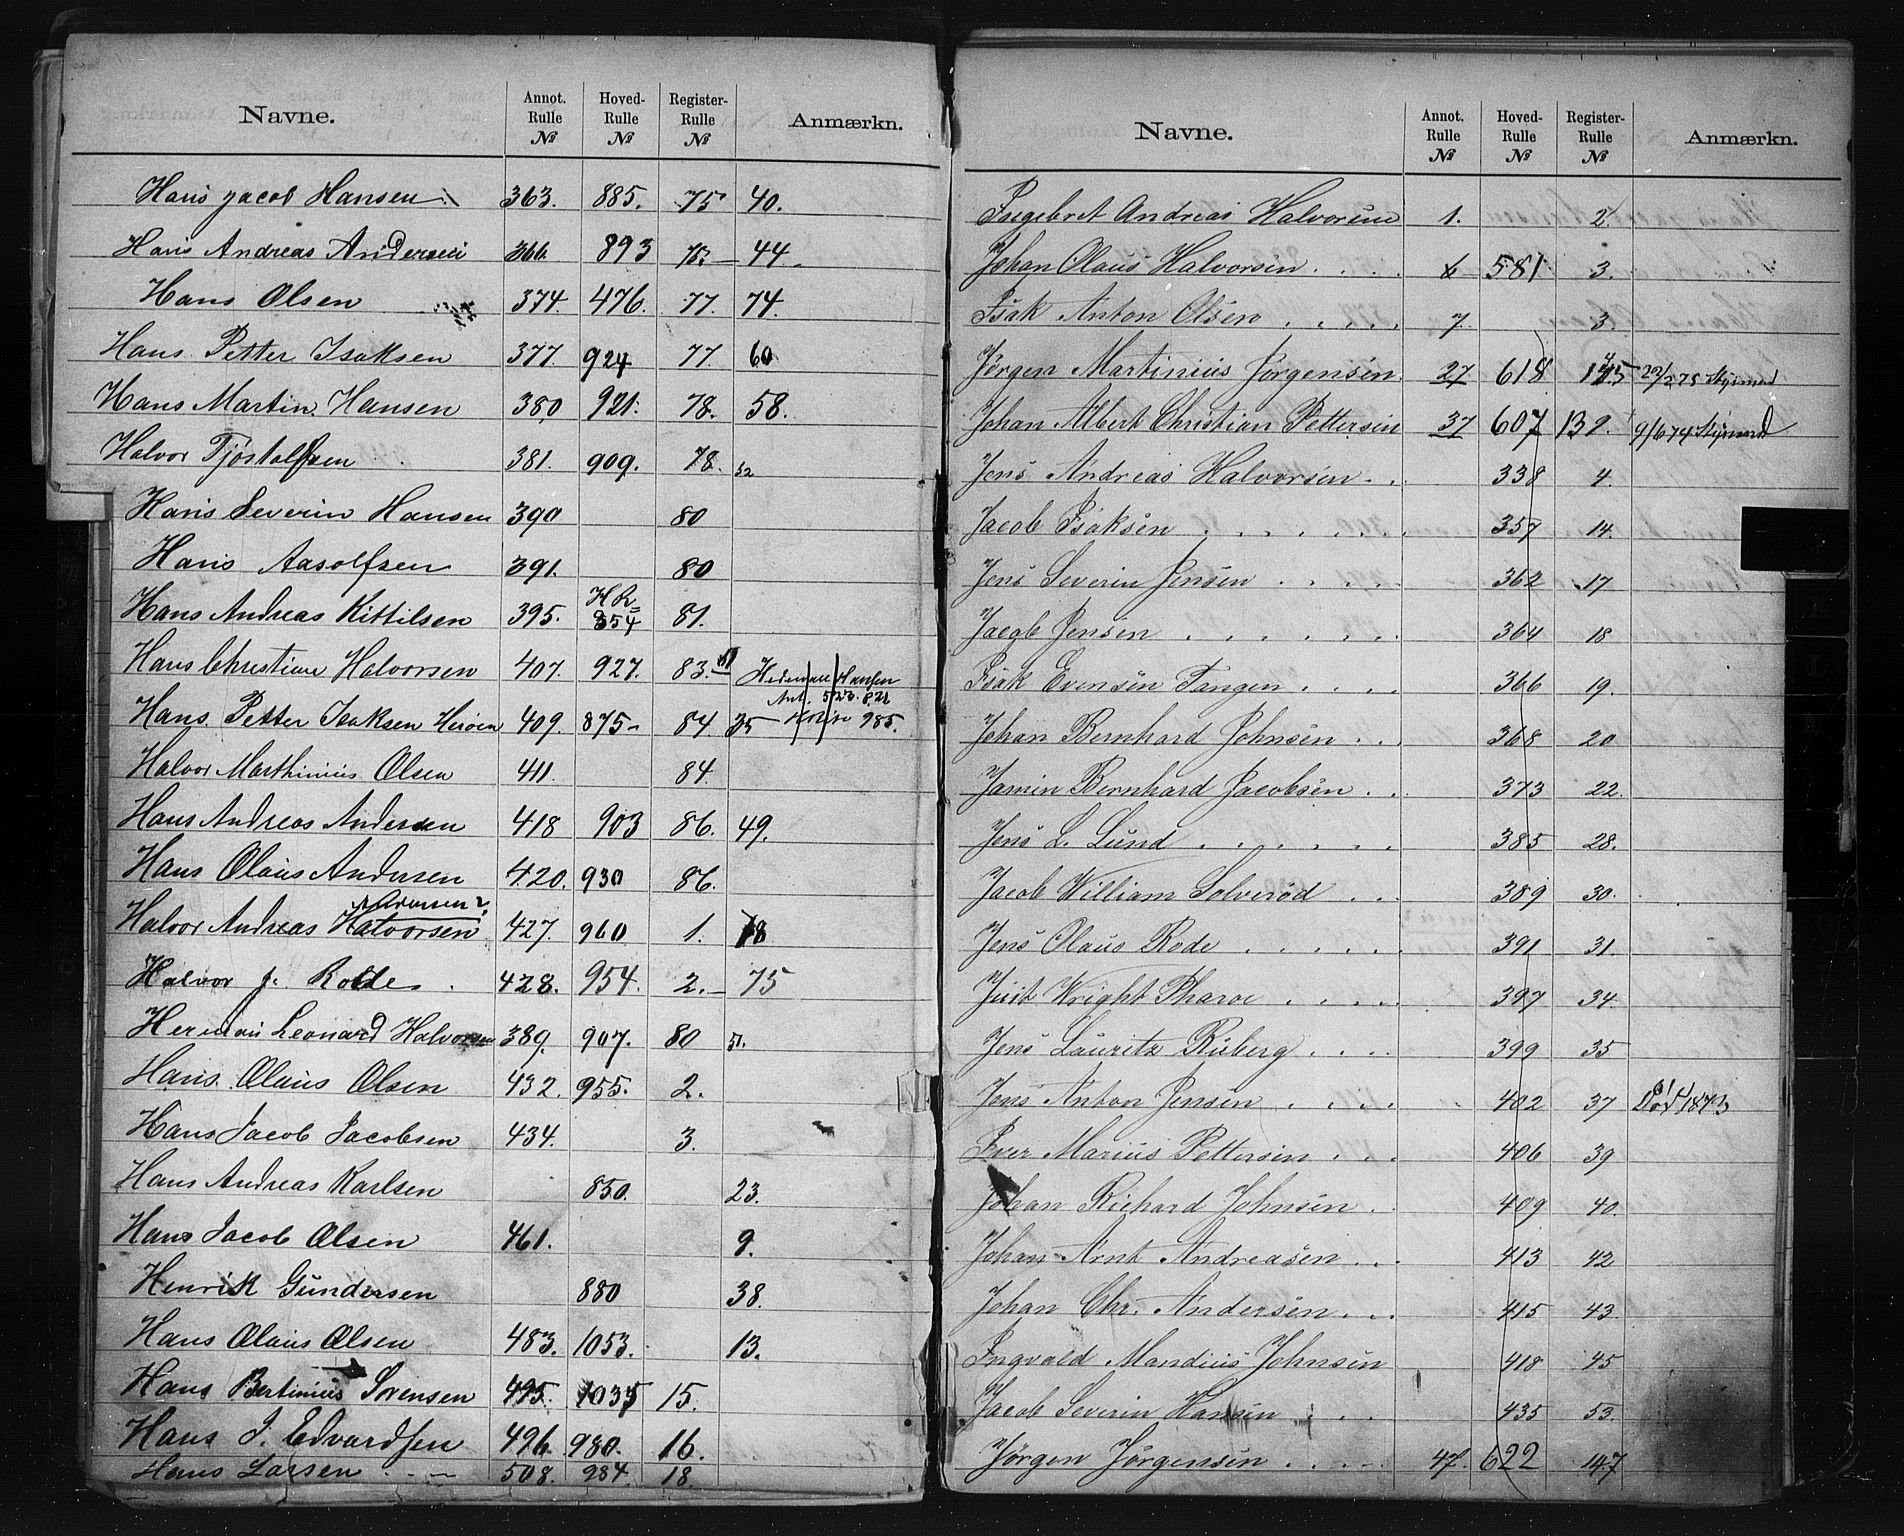 Navne. Annot. Rulle № Hoved- Rulle № Register- Rulle № Anmærkn.
Hans Jacob Hansen 363. 885. 75 40.
Hans Andreas Andersen 366. 893 44
Hans Olsen 374. 476. 77. 74.
Hans Petter Isaksen 377. 924 77. 60
Hans Martin Hansen 380 921. 78. 58.
Halvor Tjøstolfsen 381. 909. 78. 52
Hans Severin Hansen 390 80
Hans Aasolfsen 391. 80
Hans Andreas Kittilsen 395. H R 854 81.
Hans Christian Halvorsen 407. 927. 83.
Hans Petter Isaksen 409. 875 84 35 985.
Halvor Marthinius Olsen 411. 84.
Hans Andreas Andersen 418 903 86. 49.
Hans Olaus Andersen 420. 930 86.
Andersen?
Halvor Andreas Halvorsen 427. 960 1. 78
Halvor J. Rolde 428. 954. 2. 75
Herman Leonard Halvorsen 389. 907. 80 51.
Hans Olaus Olsen 432. 955. 2.
Hans Jacob Jacobsen 434. 3.
Hans Andreas Karlsen 850. 23.
Hans Jacob Olsen 461. 9.
Henrik Gundersen 880 38.
Hans Olaus Olsen 483. 1053. 13.
Hans Bertinius Sørensen 495. 1035 15.
Hans J. Edvardsen 496. 980. 16.
Hans Larsen 508. 984. 18.
Navne. Annot. Rulle № Hoved- Rulle № Register- Rulle № Anmærkn.
Ingebret Andreas Halvorsen 1. 2.
Johan Olaus Halvorsen 6 581 3.
Isak Anton Olsen 7. 3.
Jørgen Martinius Jørgensen 27 618 145 22/2 75 Styrmd
Johan Albert Christian Pettersen 37 607 139. 9/6 74 Styrmd
Jens Andreas Halvorsen 338 4.
Jacob Isaksen 357 14.
Jens Severin Jensen 362 17
Jacob Jensen 364 18
Isak Evensen Tangen 366 19.
Johan Bernhard Johnsen 368 20
Jamin Bernhard Jacobsen 373 22.
Jens L. Lund 385 28.
Jacob William Solverød 389 30.
Jens Olaus Rode 391 31.
Juit Wright Pharoe 397 34.
Jens Lauritz Ruberg 399 35
Jens Anton Jensen 402 37 Død 1873
Iver Marius Pettersen 406 39
Johan Richard Johnsen 409 40.
Johan Arnt Andreasen 413 42
Johan Chr. Andersen 415 43.
Ingvald Mandius Johnsen 418 45
Jacob Severin Hansen 435 53.
Jørgen Jørgensen 47. 622 147